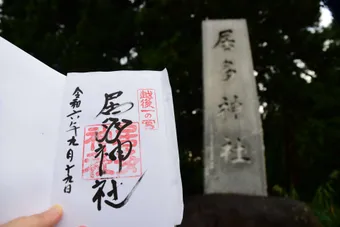 越後一の宮
居多神社
令和六年九月十九日
居多神社